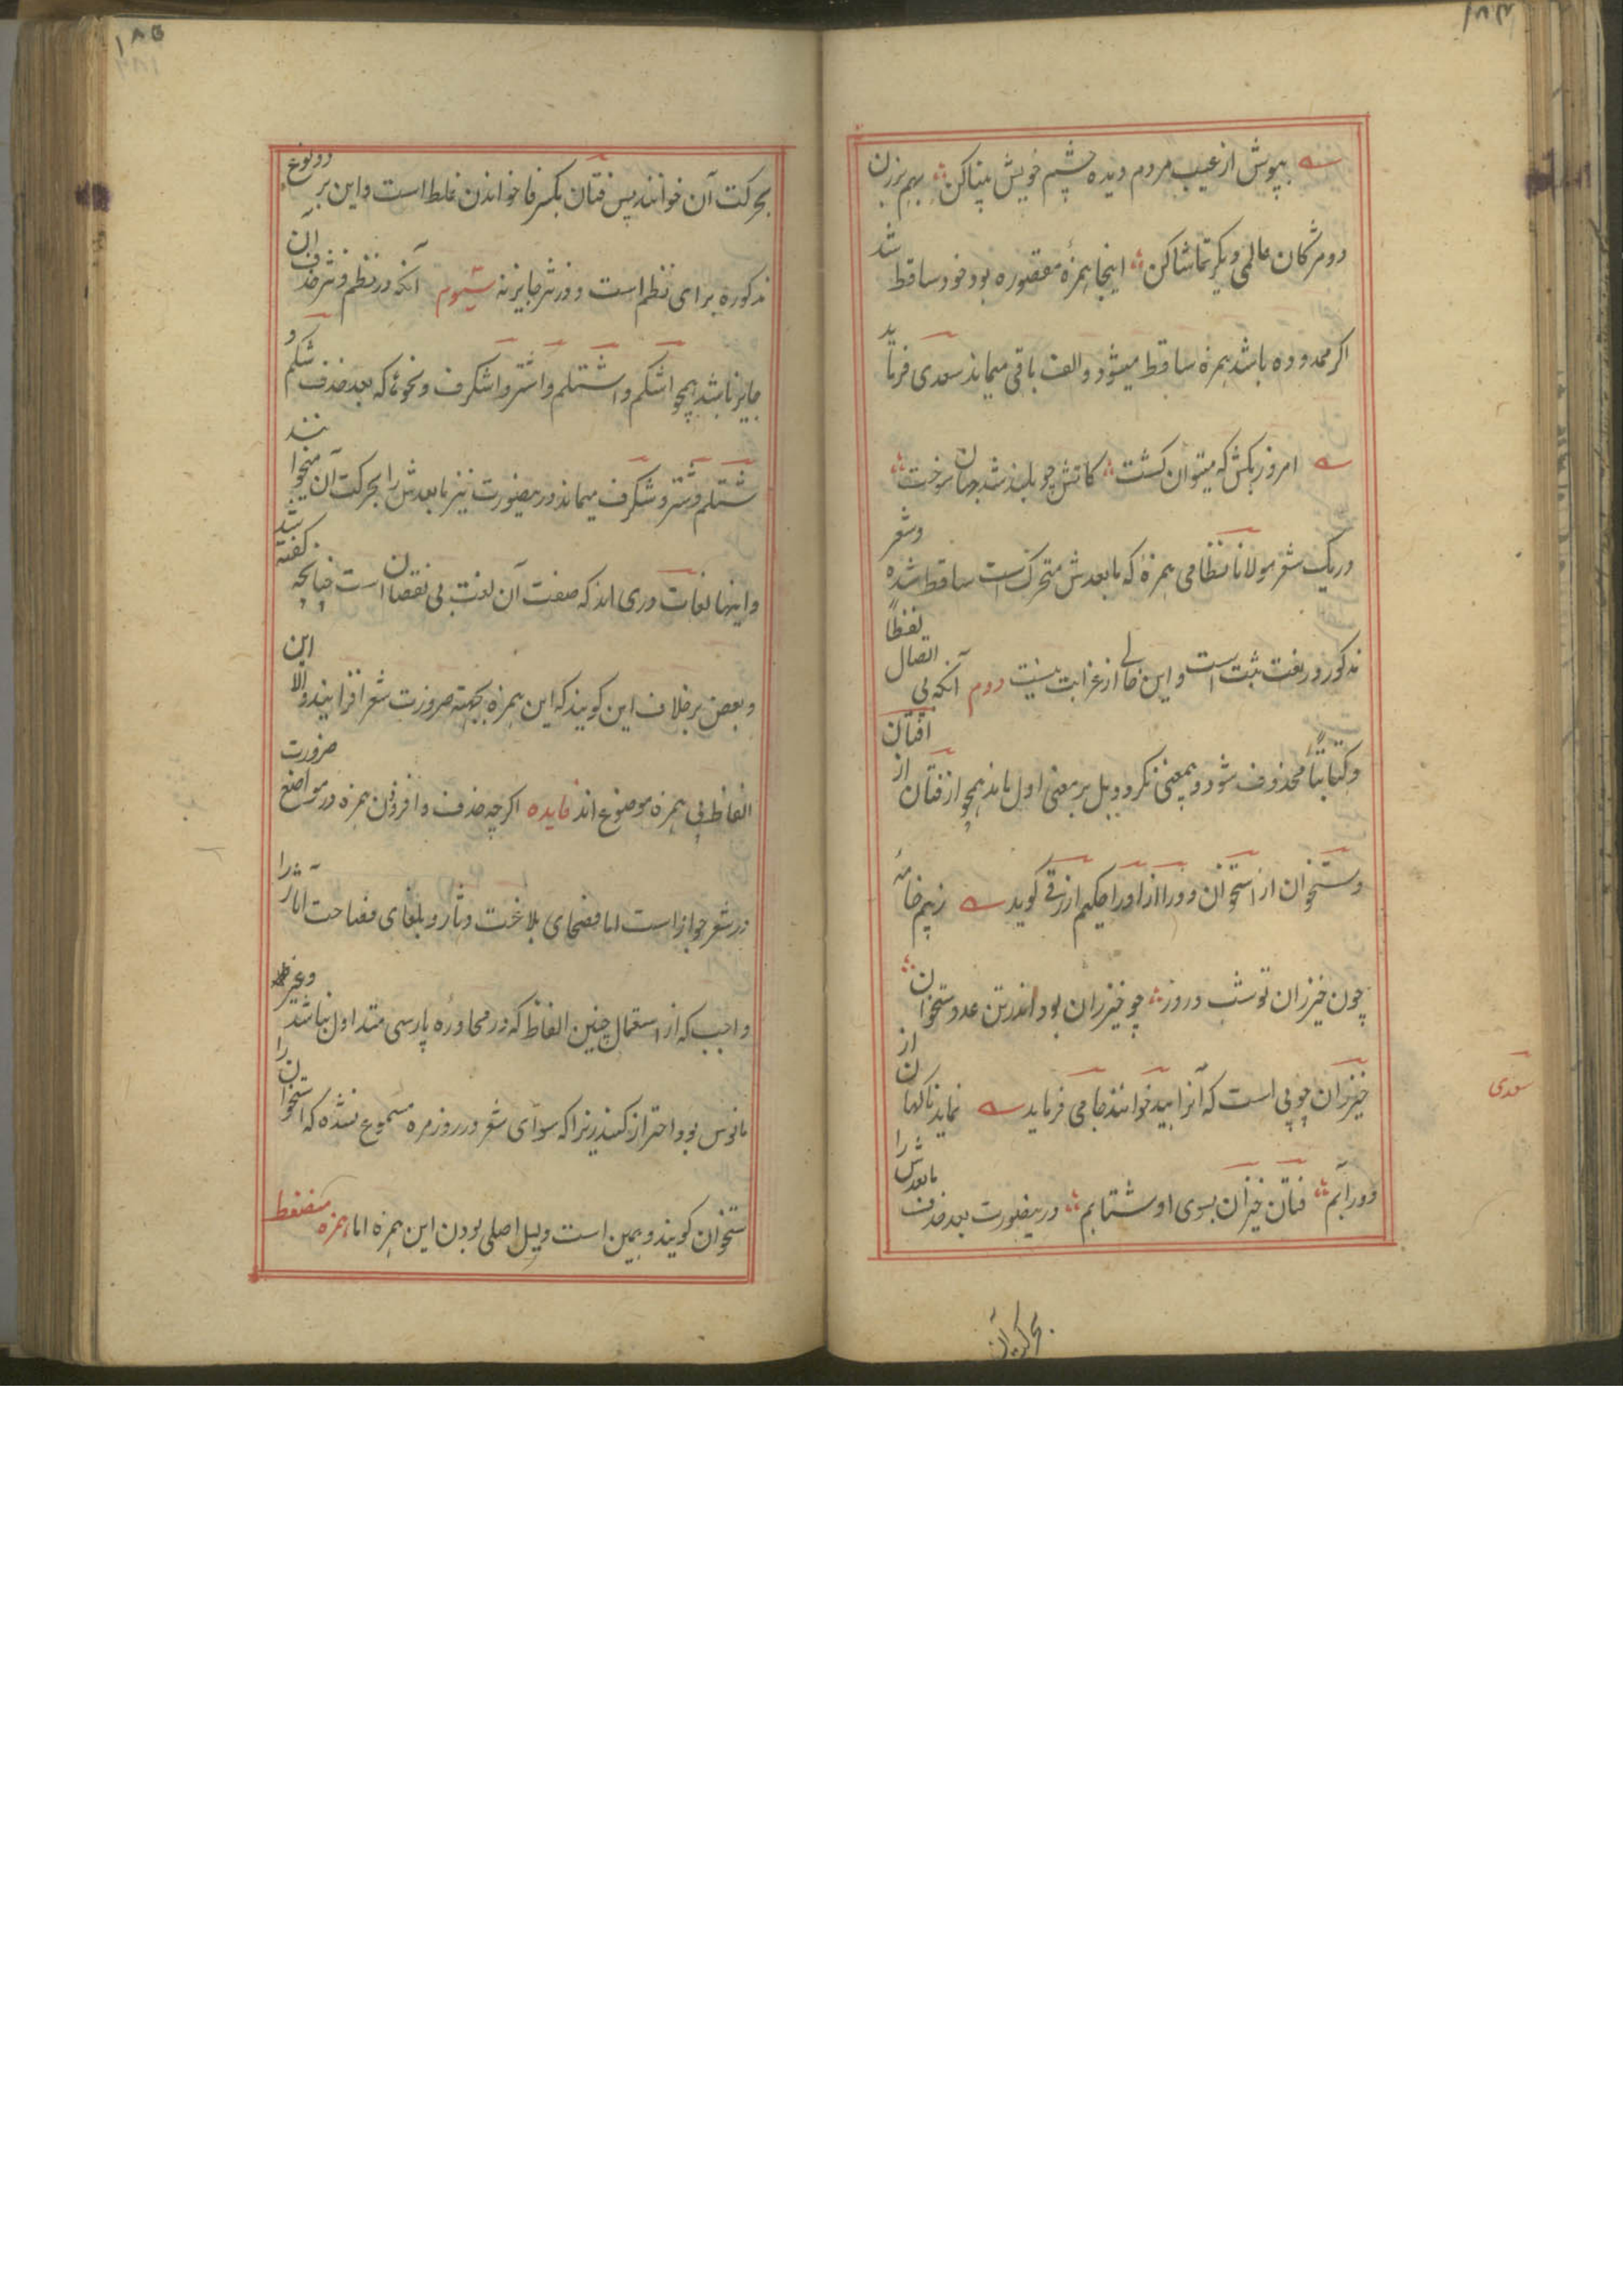 ۱۸۴
بپوش از عیب مردم دیده چشم خویش بیناکن بهم برزن
دو مژگان عالمی دیگر تماشاکن اینجا همزه مقصوره بود خود ساقط شد
اگر ممدوده باشد همزه ساقط میشود و الف باقی میماند سعدی فرماید
امروز بکش که میتوان کشت کاتش چو بلند شد جهان سوخت
و در یک شعر مولانا نظامی همزهٔ که مابعدش متحرک است ساقط شده و شعر
مذکور در لغت ثبت است و این خالی از غرابت نیست دوم آنکه بی اتصال لفظاً
و کتابتاً محذوف شود و بمعنی نگردد بل بر معنی اول ماند همچو از فتان از افتان
و ستخوان از استخوان و ورا از او را حکیم ازرقی گوید ز بیم خامهٔ
چون خیزران تو شب و روز چو خیزران بود اندر تن عدو ستخوان
خیزران چوبی است که آنرا بید خوانند جامی فرماید نماید ناگهان از
دور آبم فتان خیزان بسوی او شتابم درینصورت بعد حذف مابعدش را
سعدی
بحرکت آن
۱۸۵
بحرکت آن خوانند پس فتان بکسر فا خواندن غلط است و این بر دو نوع
مذکوره برای نظم است و در نثر جایز نه سیوم آنکه در نظم و نثر حذف آن
جایز باشد همچو اشکم و اشتلم و اشتر و اشکرف و نحو ما که بعد حذف شکم و
شتلم و شتر و شکرف میماند درینصورت نیز مابعدش را بحرکت آن میخوانند
و اینها لغات دری اند که صفت آن لغت بی نقصان است چنانچه گفته شد
و بعض برخلاف این گویند که این همزه بجهة ضرورت شعر افزایند و الا این
الفاظ بی همزه موضوع اند فایده اگرچه حذف و افزودن همزه در مواضع ضرورت
در شعر جواز است اما فصحای بلاغت دثار و بلغای فصاحت آثار را
واجب که از استعمال چنین الفاظ که در محاوره پارسی متداول نباشد و غیر
مانوس بود احتراز کنند زیرا که سوای شعر در روزمره مسموع نشده که استخوان را
ستخوان گویند و همین است دلیل اصلی بودن این همزه اما همزه منضغط